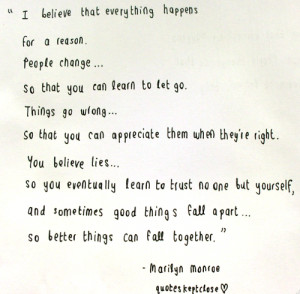 “ I believe that everything happens
for a reason.
People change...
so that you can learn to let go.
Things go wrong...
So that you can appreciate them when they're right.
You believe lies...
so you eventually learn to trust no one but yourself,
and sometimes good things fall apart...
so better things can fall together.”
- Marilyn monroe
quoteskeptclose♡